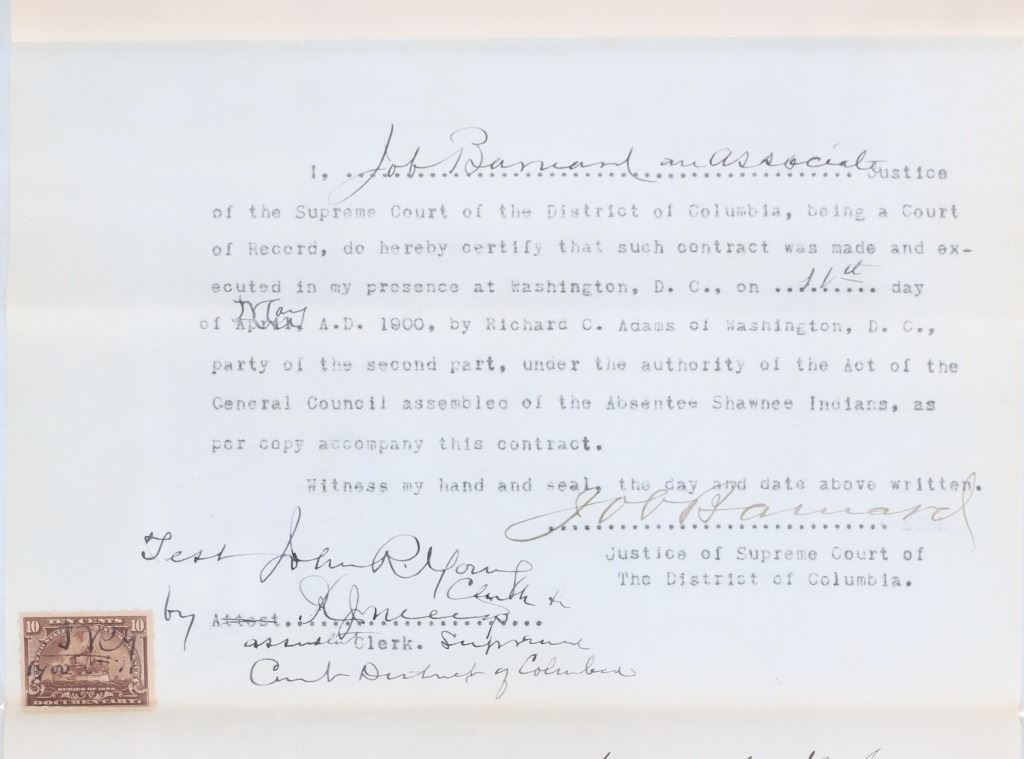 I, Job Barnard an Associate Justice
of the Supreme Court of the District of Columbia, being a Court
of Record, do hereby certify that such contract was made and ex-
ecuted in my presence at Washington, D. C., on ........ day
of April, May A.D. 1900, by Richard C. Adams of Washington, D. C.,
party of the second part, under the authority of the Act of the
General Council assembled of the Absentee Shawnee Indians, as
per copy accompany this contract.
Witness my hand and seal, the day and date above written.
Job Barnard
Justice of Supreme Court of
The District of Columbia.
Test John R. Young
Clerk
by Attest R J Meigs
assistant Clerk. Supreme
Court District of Columbia
10 TEN CENTS 10
SERIES OF 1898
DOCUMENTARY.